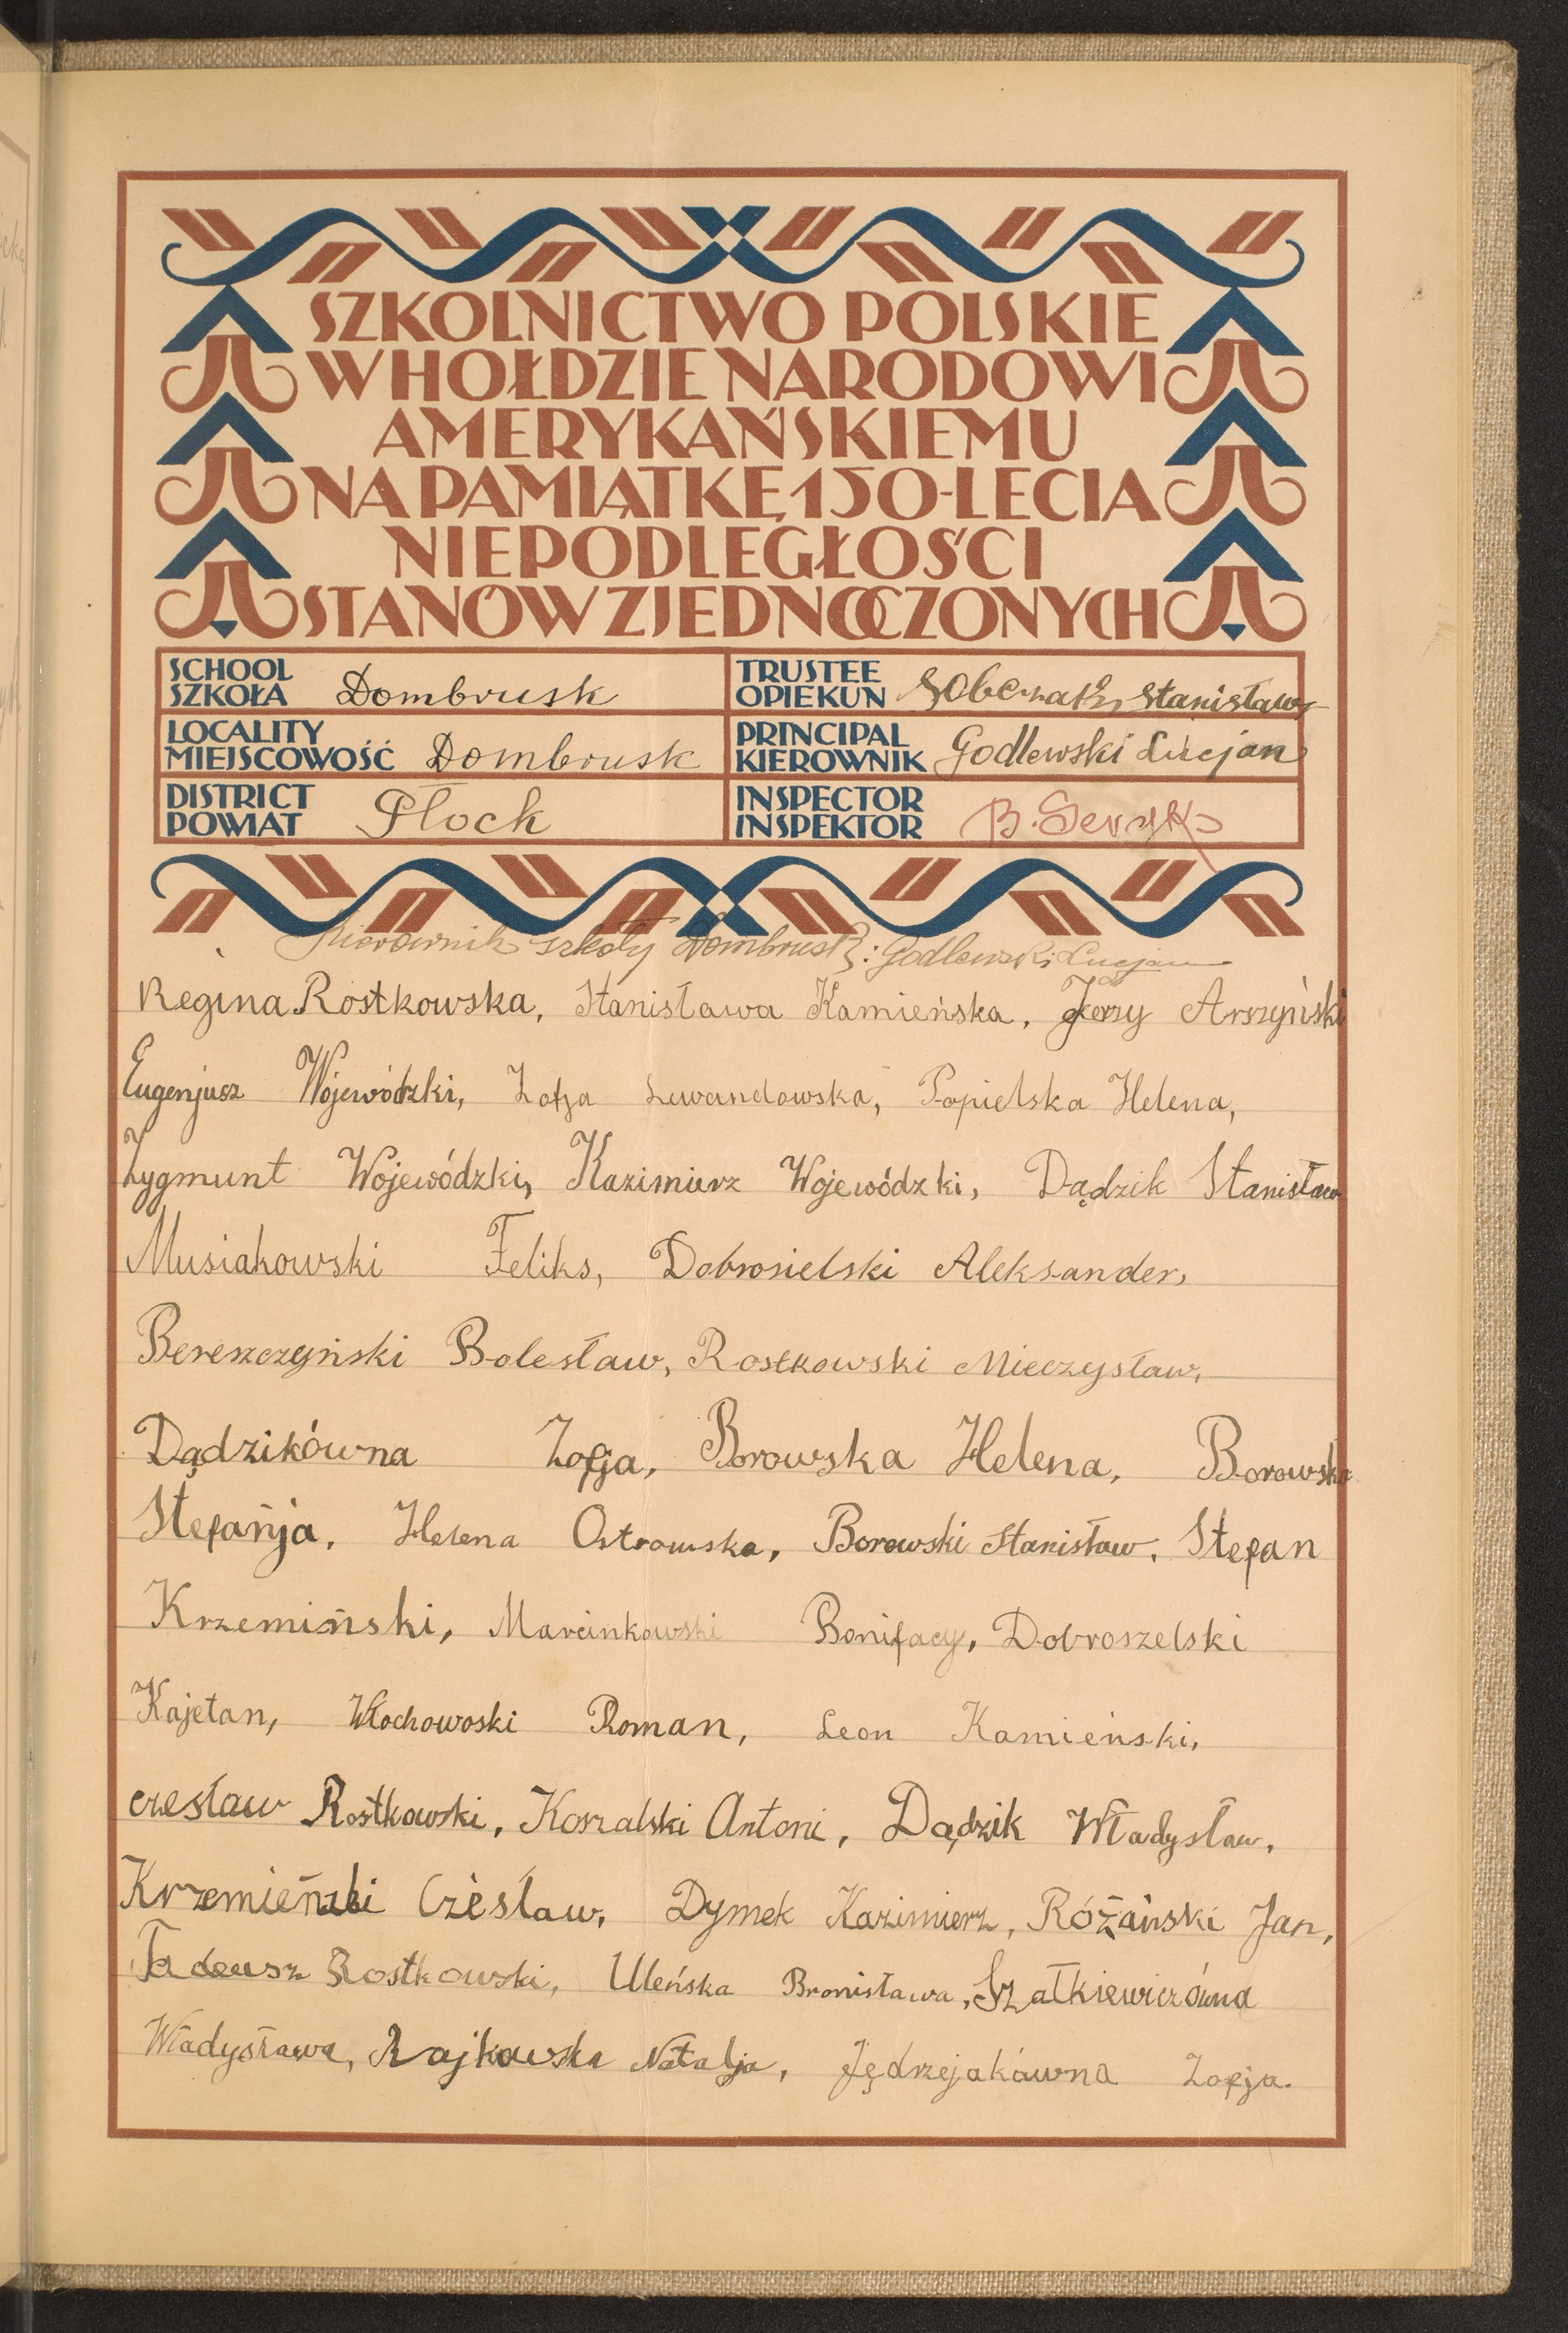 SZKOLNICTWO POLSKIE
W HOŁDZIE NARODOWI
AMERYKAŃSKIEMU
NA PAMIĄTKĘ 150-LECIA
NIEPODLEGŁOŚCI
STANÓW ZJEDNOCZONYCH
SCHOOL
SZKOŁA Dombrusk
LOCALITY
MIEJSCOWOŚĆ Dombrusk
DISTRICT
POWIAT Płock
TRUSTEE
OPIEKUN Stanisław
PRINCIPAL
KIEROWNIK Godlewski Lucjan
INSPECTOR
INSPEKTOR B.
Kierownik szkoły Dombrusk: Godlewski Lucjan
Regina Rostkowska, Stanisława Kamieńska, Jerzy Arszyński
Eugenjusz Wojewódzki, Zofja Lewandowska, Popielska Helena,
Zygmunt Wojewódzki, Kazimierz Wojewódzki, Dądzik Stanisław
Musiakowski Feliks, Dobrosielski Aleksander,
Bereszczyński Bolesław, Rostkowski Mieczysław,
Dądzikówna Zofja, Borowska Helena, Borowska
Stefańja, Helena Ostrowska, Borowski Stanisław, Stefan
Krzemiński, Marcinkowski Bonifacy, Dobroszelski
Kajetan, Włochowoski Roman, Leon Kamieński,
czesław Rostkowski, Koszalski Antoni, Dądzik Władysław,
Krzemieński Czesław, Dymek Kazimierz, Różański Jan,
Tadeusz Rostkowski, Uleńska Bronisława, Szałkiewiczówna
Władysława, Rajkowska Natalja, Jędrzejakówna Zofja.